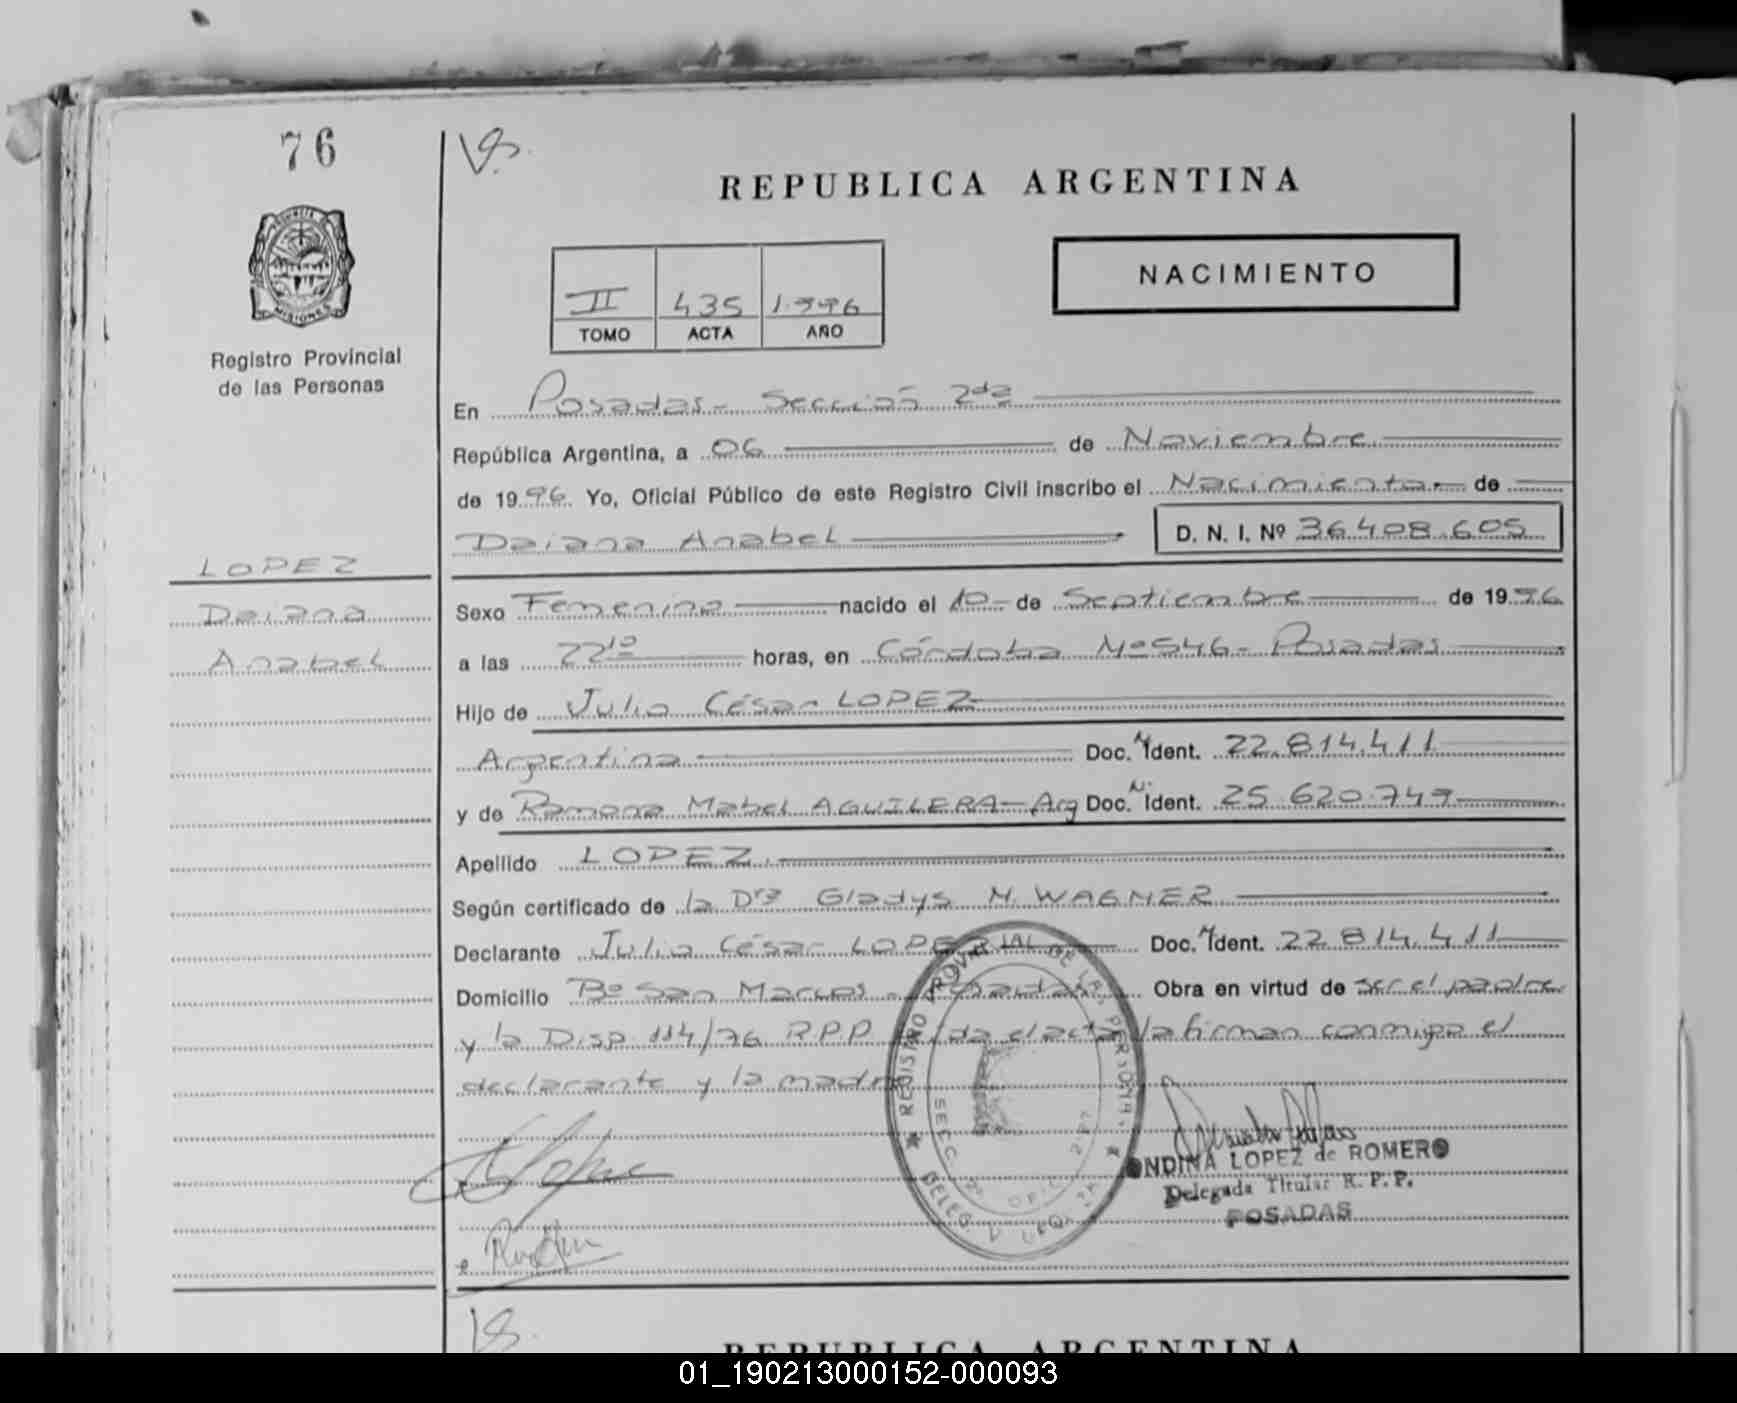 76
REPUBLICA ARGENTINA
NACIMIENTO
II 435 1.996
TOMO ACTA AÑO
MISIONES
Registro Provincial
de las Personas
En Posadas - Sección 2da
República Argentina, a 06 de Noviembre
de 1996 Yo, Oficial Público de este Registro Civil inscribo el Nacimiento de
Daiana Anabel D. N. I. Nº 36.408.605
LOPEZ
Daiana
Anabel
Sexo Femenino nacido el 10 de Septiembre de 1996
a las 22 10 horas, en Córdoba Nº 546 - Posadas
Hijo de Julio César LOPEZ
Argentina Doc. N. Ident. 22.814.411
y de Ramona Mabel AGUILERA - Arg Doc. N. Ident. 25.620.749
Apellido LOPEZ.
Según certificado de la Dra Gladys M. WAGNER
Declarante Julio César LOPEZ Doc. N. Ident. 22.814.411
Domicilio Bº San Marcos - Posadas Obra en virtud de ser el padre
y la Disp. 114/76 R.P.P. el acta la firman conmigo el
declarante y la madre
REGISTRO PROVINCIAL DE LAS PERSONAS
SECC. 2ª
ONDINA LOPEZ de ROMERO
Delegada Titular R. P. P.
POSADAS
REPUBLICA ARGENTINA
01_190213000152-000093